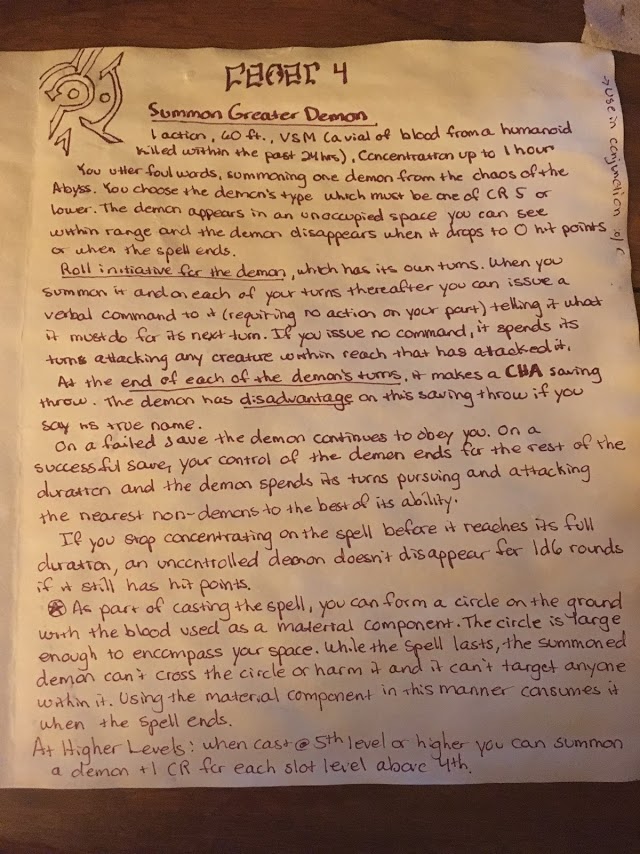 Level 4
Summon Greater Demon
1 action, 60 ft., VSM (a vial of blood from a humanoid
killed within the past 24hrs), Concentration up to 1 hour
You utter foul words, summoning one demon from the chaos of the
Abyss. You choose the demon's type which must be one of CR 5 or
lower. The demon appears in an unoccupied space you can see
within range and the demon disappears when it drops to 0 hit points
or when the spell ends.
Roll initiative for the demon, which has its own turns. When you
summon it and on each of your turns thereafter you can issue a
verbal command to it (requiring no action on your part) telling it what
it must do for its next turn. If you issue no command, it spends its
turns attacking any creature within reach that has attacked it.
At the end of each of the demon's turns, it makes a CHA saving
throw. The demon has disadvantage on this saving throw if you
say its true name.
On a failed save the demon continues to obey you. On a
successful save, your control of the demon ends for the rest of the
duration and the demon spends its turns pursuing and attacking
the nearest non-demons to the best of its ability.
If you stop concentrating on the spell before it reaches its full
duration, an uncontrolled demon doesn't disappear for 1d6 rounds
if it still has hit points.
As part of casting the spell, you can form a circle on the ground
with the blood used as a material component. The circle is large
enough to encompass your space. While the spell lasts, the summoned
demon can't cross the circle or harm it and it can't target anyone
within it. Using the material component in this manner consumes it
when the spell ends.
At Higher Levels: when cast @ 5th level or higher you can summon
a demon +1 CR for each slot level above 4th.
→ Use in conjunction